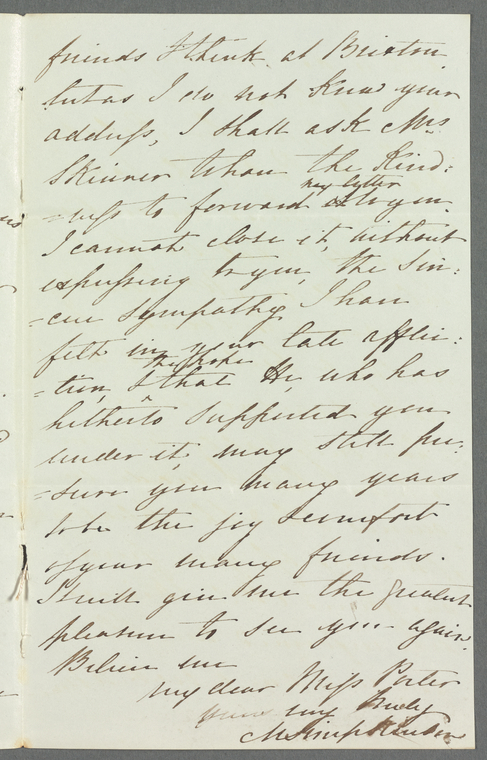 friends I think at Brixton
but as I do not know your
address, I shall ask Mrs
Skinner to have the kind:
my letter
=ness to forward it to you.
I cannot close it, without
expressing to you, the sin:
=cere sympathy I have
felt in your late afflic:
the hope
=tion, & that He, who has
hitherto supported you
under it, may still pre:
=serve you many years
to be the joy & comfort
of your many friends.
It will give me the greatest
pleasure to see you again.
Believe me
my dear Miss Porter
yours very truly